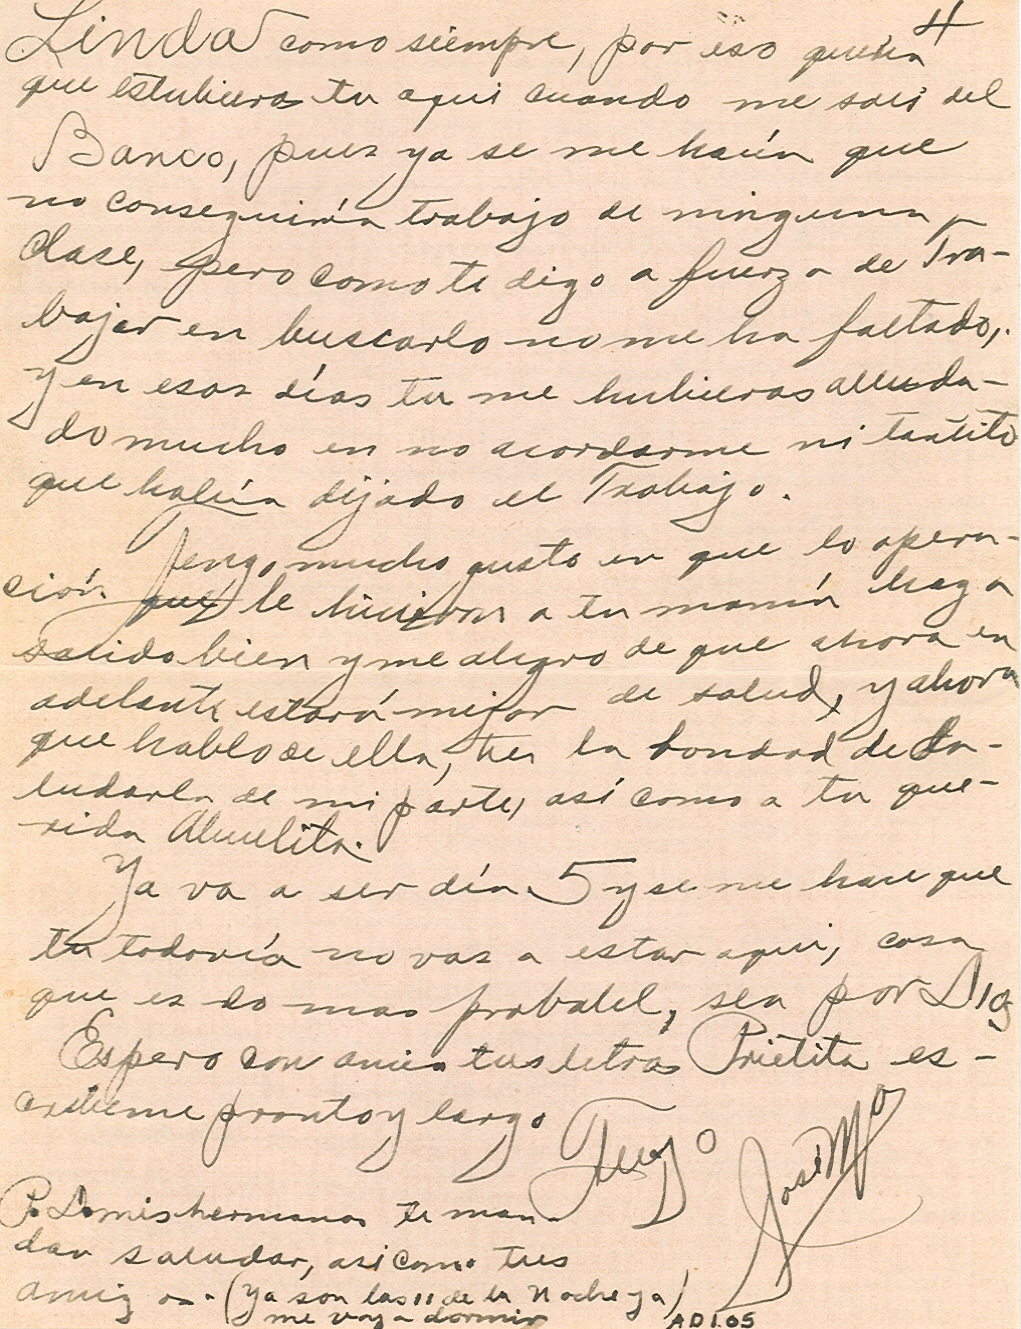 4
Linda como siempre, por eso quería
que estubieras tu aqui cuando me sali del
Banco, pues ya se me hacía que
no conseguiría trabajo de ninguna
Clase, pero como te digo a fuerza de Tra-
bajar en buscarlo no me ha faltado,
y en esos días tu me hubieras alluda-
do mucho en no acordarme ni tantito
que había dejado el Trabajo.
Tengo mucho gusto en que la opera-
ción que le hicieron a tu mamá haya
salido bien y me alegro de que ahora en
adelante estará mejor de salud, y ahora
que hablo de ella, ten la bondad de Sa-
ludarla de mi parte, así como a tu que-
rida Abuelita.
Ya va a ser día 5 y se me hace que
tu todavía no vas a estar aqui, cosa
que es lo mas probabel, sea por Dios
Espero con ancia tus letras Prietita es-
cribeme pronto y largo
Tuyo José Ma
P. D. mis hermanas te man-
dan saludar, asi como tus
amigas. (Ya son las 11 de la Noche ya)
me voy a dormir ADIOS